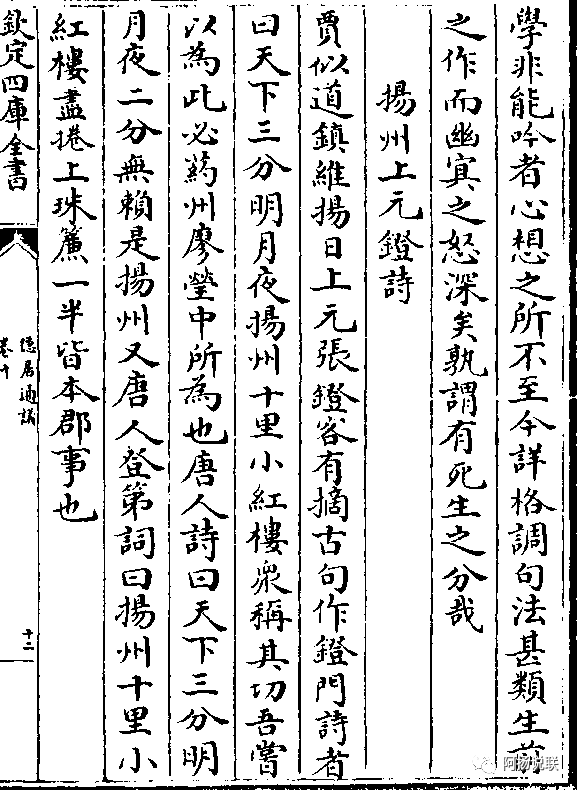 學非能吟者心想之所不至今詳格調句法甚類生前
之作而幽冥之怒深矣孰謂有死生之分哉
揚州上元鐙詩
賈似道鎮維揚日上元張鐙客有摘古句作鐙門詩者
曰天下三分明月夜揚州十里小紅樓衆稱其切吾嘗
以為此必葯州廖瑩中所為也唐人詩曰天下三分明
月夜二分無賴是揚州又唐人登第詞曰揚州十里小
紅樓盡捲上珠簾一半皆本郡事也
欽定四庫全書
隱居通議
卷十
十二
阿彌说联